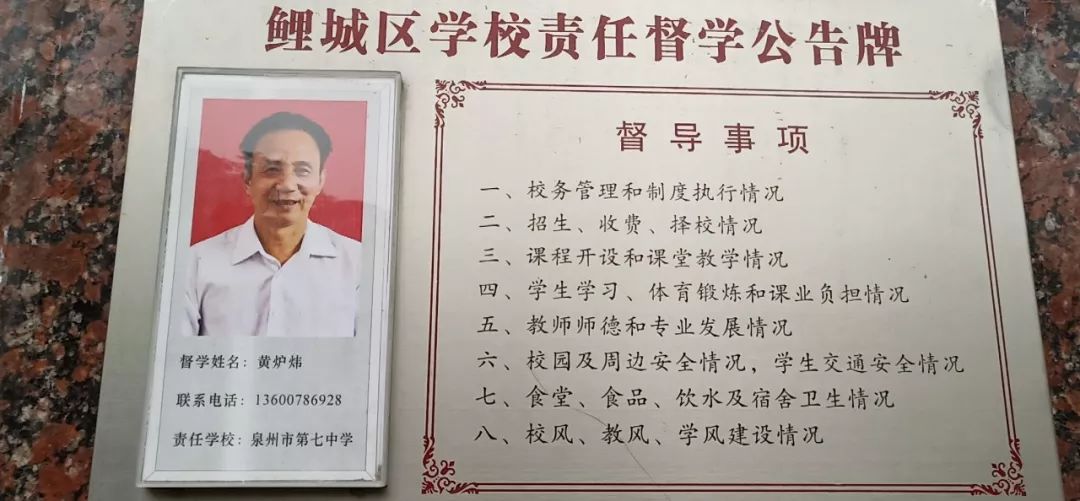 鲤城区学校责任督学公告牌
督学姓名：黄炉炜
联系电话：13600786928
责任学校：泉州市第七中学
督导事项
一、校务管理和制度执行情况
二、招生、收费、择校情况
三、课程开设和课堂教学情况
四、学生学习、体育锻炼和课业负担情况
五、教师师德和专业发展情况
六、校园及周边安全情况，学生交通安全情况
七、食堂、食品、饮水及宿舍卫生情况
八、校风、教风、学风建设情况